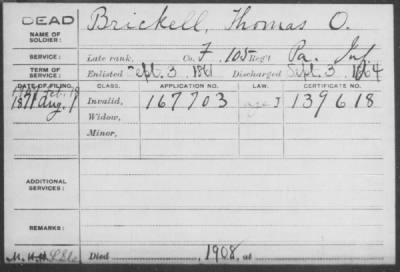 DEAD
NAME OF SOLDIER: Brickell, Thomas O.
SERVICE: Late rank, Co. F, 105 Reg't Pa. Inf.
TERM OF SERVICE: Enlisted Sept. 3, 1861 Discharged Sept. 3, 1864
DATE OF FILING. CLASS. APPLICATION NO. LAW. CERTIFICATE NO.
Invalid, 167703 139618
1871 Aug.
Widow,
Minor,
ADDITIONAL SERVICES:
REMARKS:
Died 1908, at